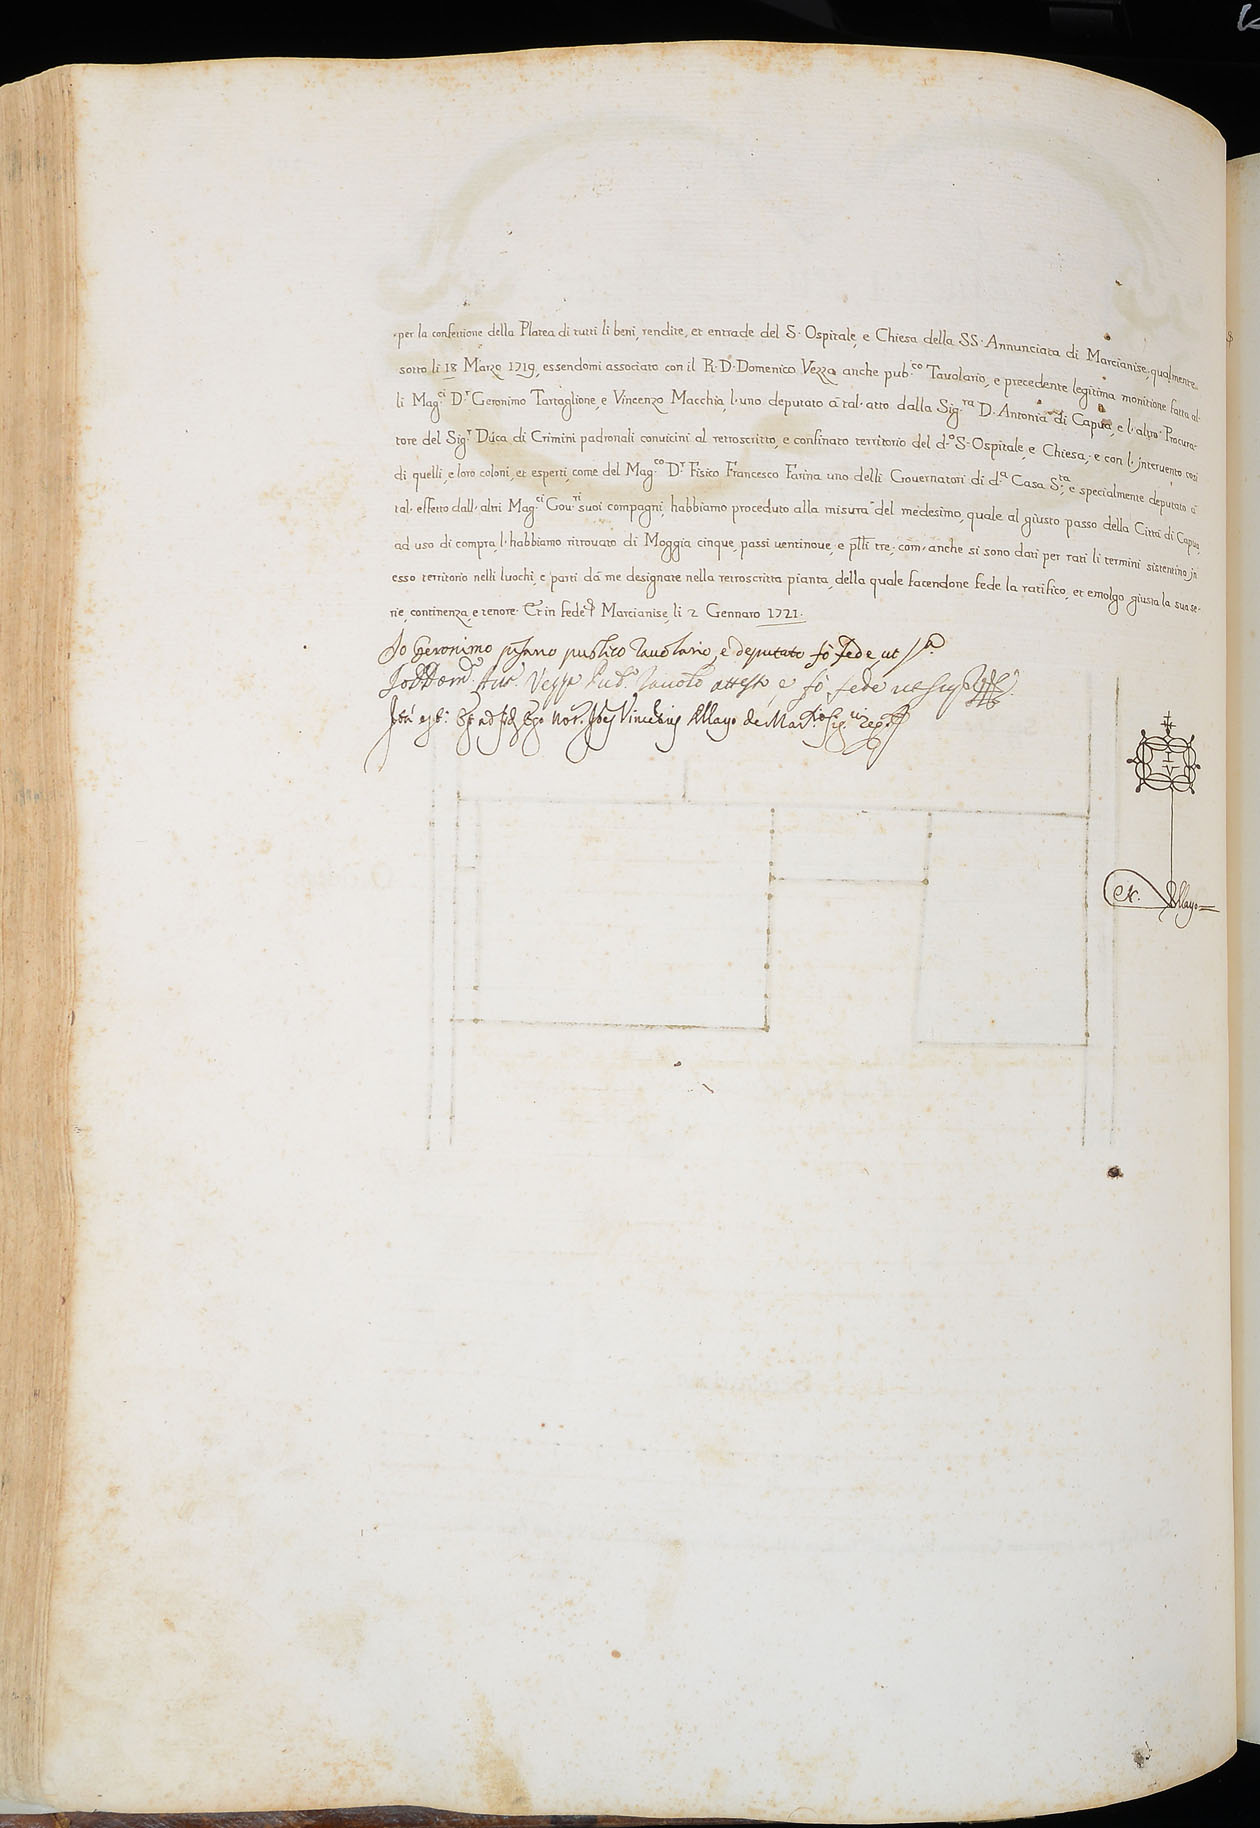 per la confettione della Platea di tutti li beni, rendite, et entrade del S. Ospitale, e Chiesa della SS. Annunciata di Marcianise, qualmente
sotto li 18 Marzo 1719, essendomi associato con il R. D. Domenico Vezza anche pub.co Tauolario, e precedente legitima monitione fatta al-
li Mag.ci D.r Geronimo Tartaglione, e Vincenzo Macchia, l'uno deputato à tal' atto dalla Sig.ra D. Antonia di Capua, e l'altro Procura-
tore del Sig.r Duca di Crimini padronali conuicini al retroscritto, e confinato territorio del d.o S. Ospitale, e Chiesa, e con l'interuento così
di quelli, e loro coloni, et esperti, come del Mag.co D.r Fisico Francesco Farina uno delli Gouernatori di d.a Casa S.ta, e specialmente deputato à
tal' effetto dall' altri Mag.ci Gou.ri suoi compagni, habbiamo proceduto alla misura del medesimo, quale al giusto passo della Città di Capua
ad uso di compra, l'habbiamo ritrouato di Moggia cinque, passi uentinoue, e p.lli tre; com' anche si sono dati per rati li termini sistentino in
esso territorio nelli luochi, e parti da me designate nella retroscritta pianta, della quale facendone fede la ratifico, et emolgo giusta la sua se-
rie, continenza, e tenore. Et in fede Marcianise, li 2 Gennaro 1721.
Io Geronimo pisano publico tauolario, e deputato fò fede ut s.a
Io D. Dom.co Ant.o Vezza Pub.o Tauol.o attesto e fò fede ut sup.a
Ita est: Et ad fid. Ego Not. Vincentius Mayo de Mar.sio sig.ui
N. Mayo